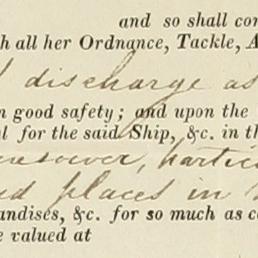 and so shall con
h all her Ordnance, Tackle, A
discharge as
n good safety; and upon the
l for the said Ship, &c. in th
places in
andises, &c. for so much as co
e valued at